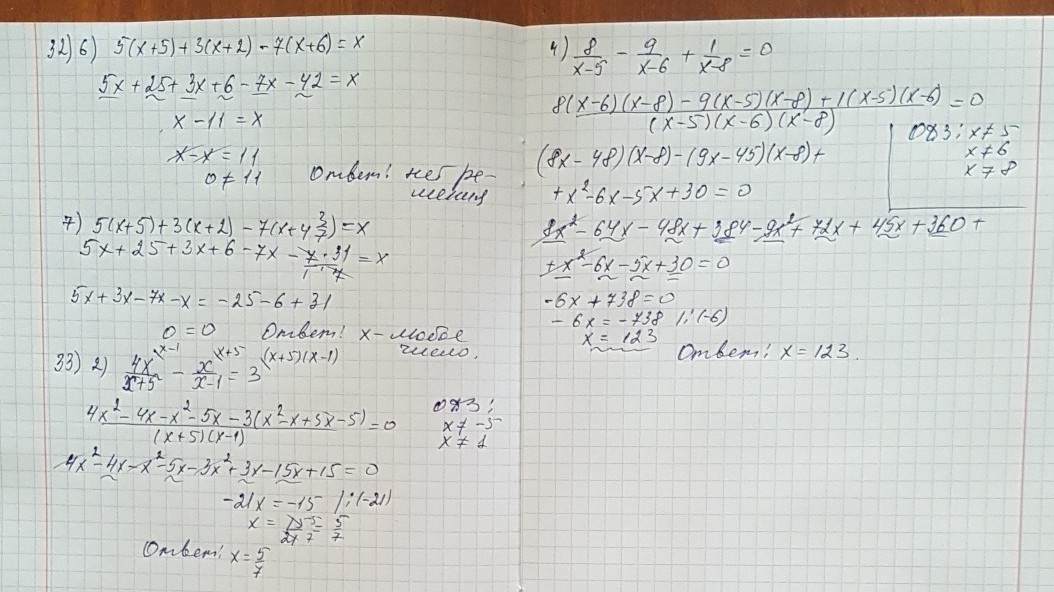 32) 6) 5(x+5)+3(x+2)-7(x+6)=x
5x+25+3x+6-7x-42=x
x-11=x
x-x=11
0≠11
Ответ: нет ре-
шения
7) 5(x+5)+3(x+2)-7(x+4 3/7)=x
5x+25+3x+6-7x-7·31/1·7=x
5x+3x-7x-x=-25-6+31
0=0 Ответ: x-любое
число.
33) 2) 4x/x+5 ^x-1 - x/x-1 ^x+5 = 3 ^(x+5)(x-1)
4x²-4x-x²-5x-3(x²-x+5x-5)/(x+5)(x-1)=0
ОДЗ:
x≠-5
x≠1
4x²-4x-x²-5x-3x²+3x-15x+15=0
-21x=-15 |:(-21)
x=15/21 5/7=5/7
Ответ: x=5/7
4) 8/x-5 - 9/x-6 + 1/x-8 = 0
8(x-6)(x-8)-9(x-5)(x-8)+1(x-5)(x-6)/(x-5)(x-6)(x-8)=0
ОДЗ: x≠5
x≠6
x≠8
(8x-48)(x-8)-(9x-45)(x-8)+
+x²-6x-5x+30=0
8x²-64x-48x+384-9x²+72x+45x+360+
+x²-6x-5x+30=0
-6x+738=0
-6x=-738 |:(-6)
x=123
Ответ: x=123.